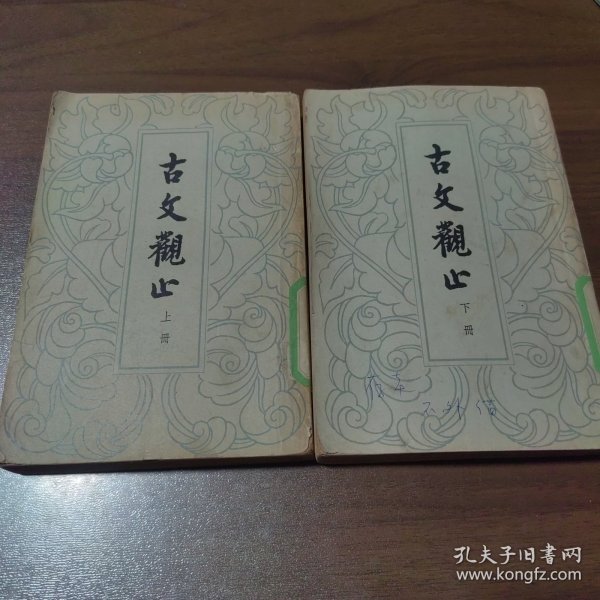 古文觀止
上冊
古文觀止
下冊
存本
不外借
孔夫子旧书网
www.kongfz.com